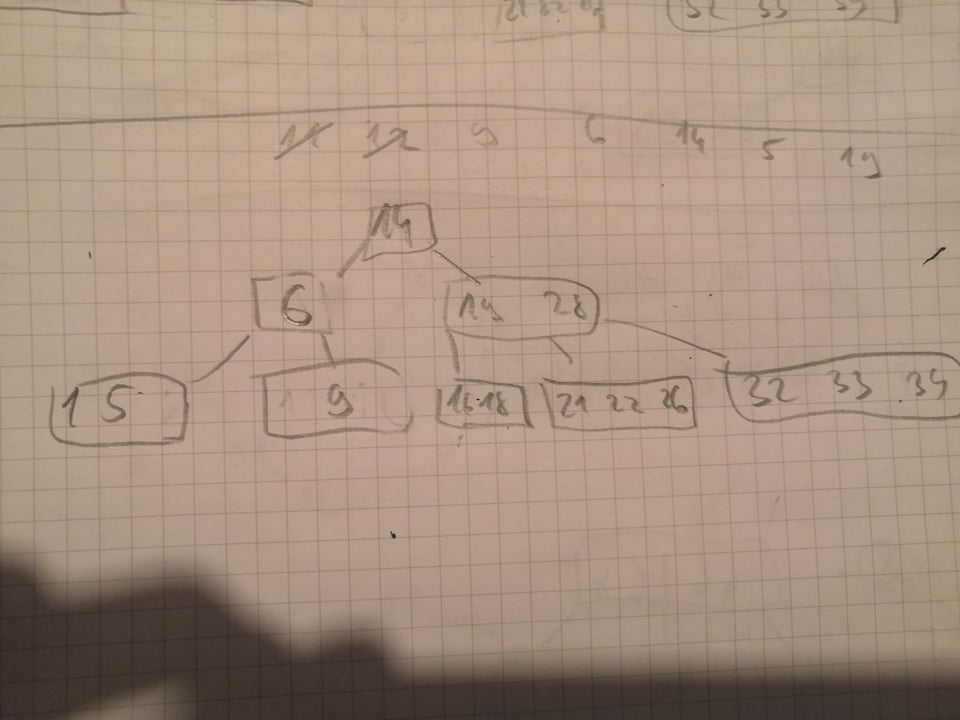 21 22 26 32 33 39
11 12 9 6 14 5 19
14
6 19 28
1 5 9 16 18 21 22 26 32 33 39